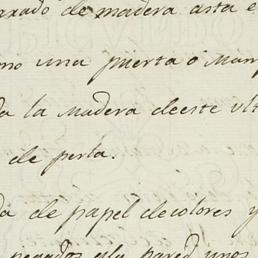 de madera asta e
mo una puerta o Mam
da la Madera de este ult
de perla.
da de papel de colores y
pegados a la pared unos